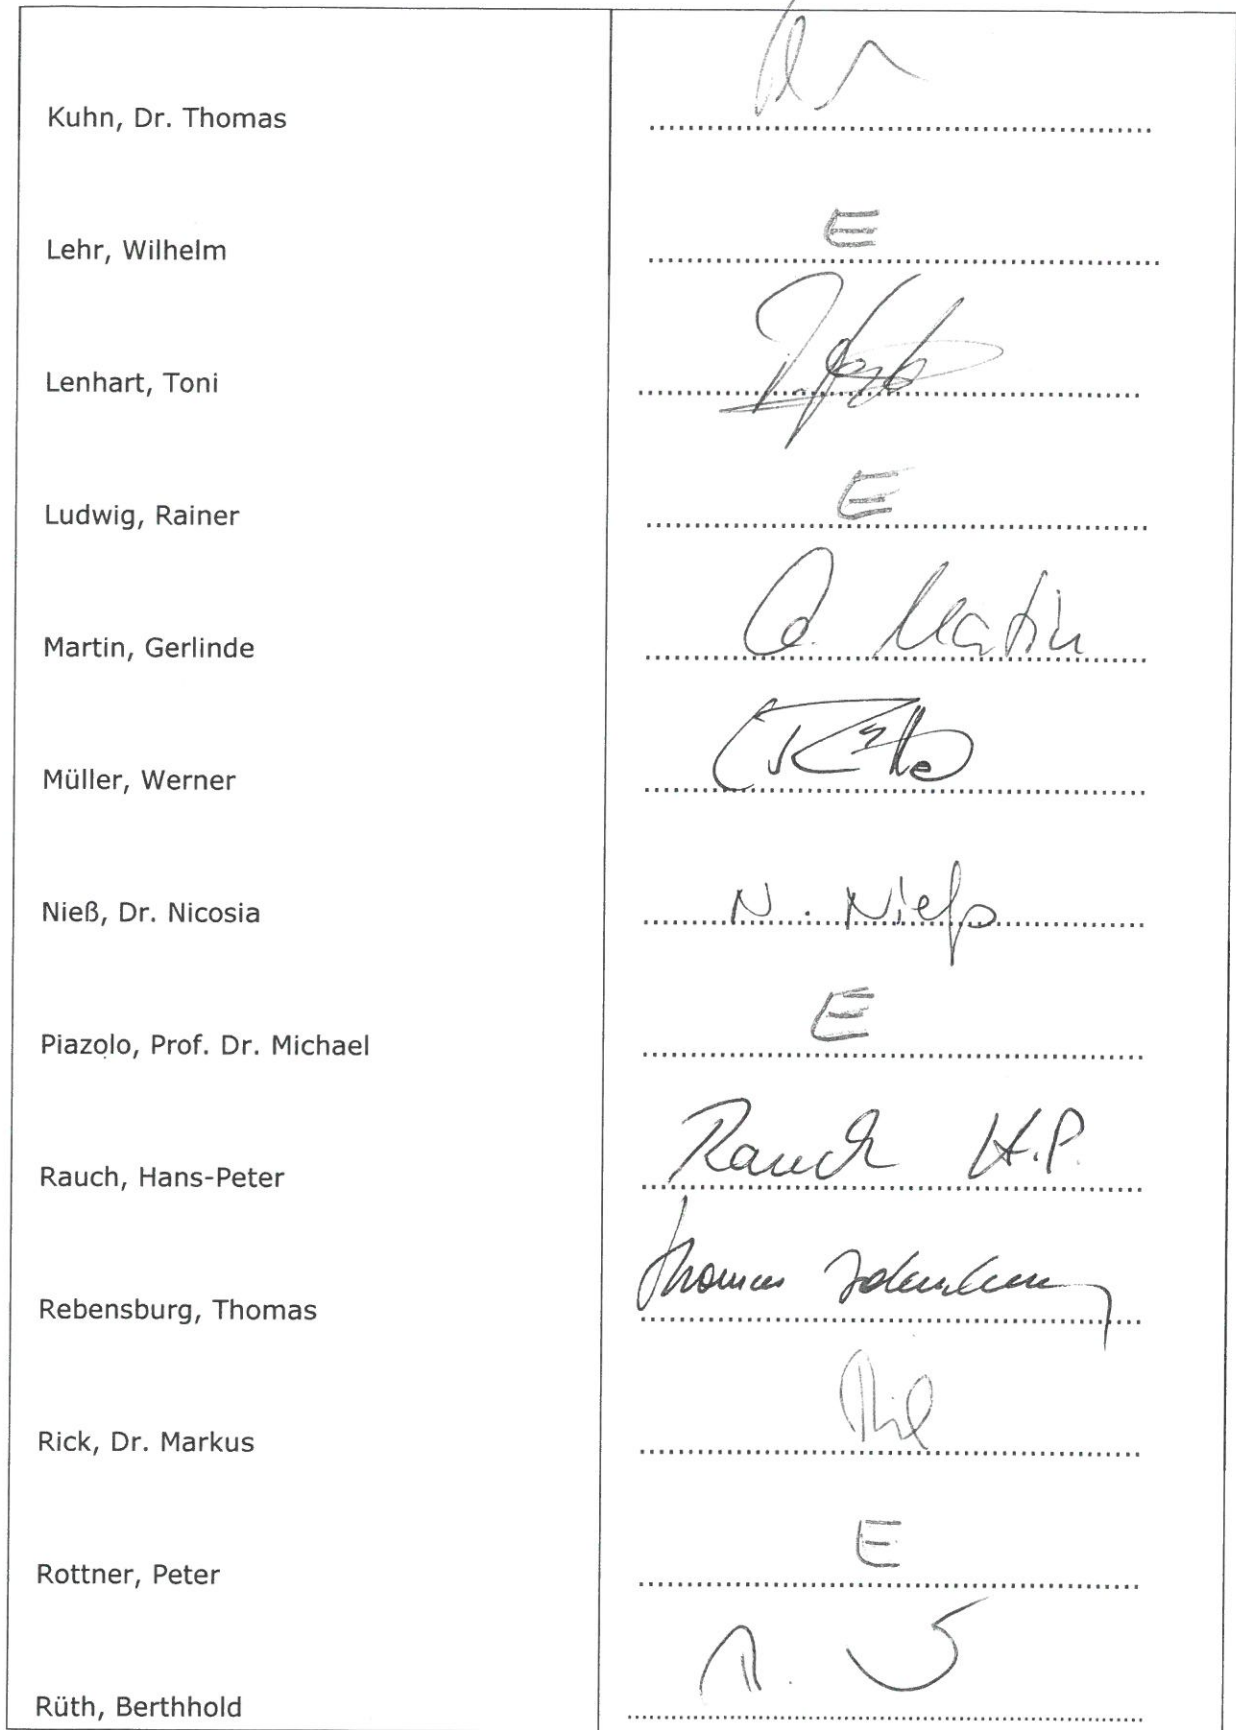 Kuhn, Dr. Thomas
Lehr, Wilhelm E
Lenhart, Toni
Ludwig, Rainer E
Martin, Gerlinde G. Martin
Müller, Werner
Nieß, Dr. Nicosia N. Nieß
Piazolo, Prof. Dr. Michael E
Rauch, Hans-Peter Rauch H.P.
Rebensburg, Thomas Thomas
Rick, Dr. Markus
Rottner, Peter E
Rüth, Berthhold